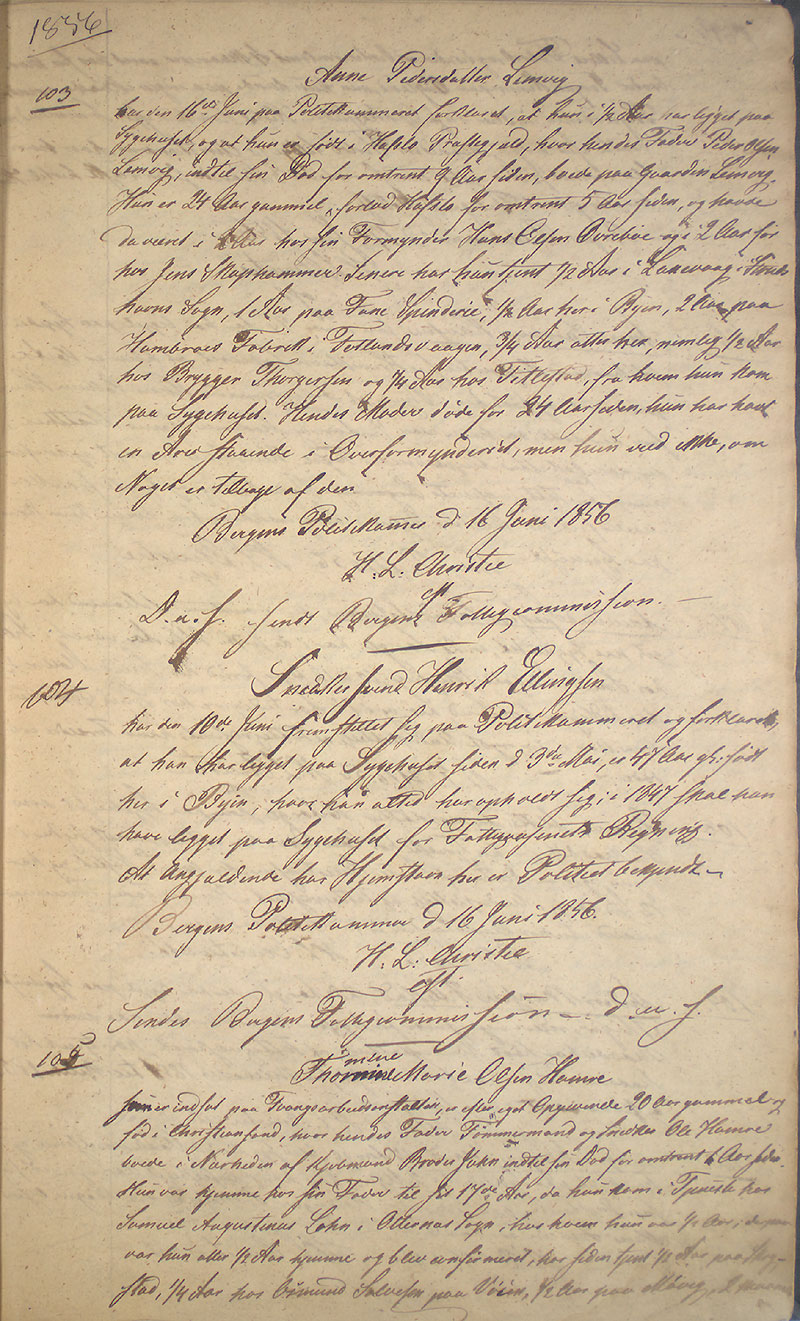 1856
103
Anne Pedersdatter Lemvig
har den 16de Juni paa Politikammeret forklaret, at hun i 1/2 Aar har ligget paa
Sygehuset, og at hun er født i Hafslo Præstegjæld, hvor hendes Fader Peder Olsen
Lemvig, indtil sin Død for omtrent 9 Aar siden, boede paa Gaarden Lemvig.
Hun er 24 Aar gammel, forlod Hafslo for omtrent 5 Aar siden, og havde
da været i Aar hos sin Formynder Hans Olsen Ovreboe og i 2 Aar før
hos Jens Skaphammer. Senere har hun tjent 1/2 Aar i Laxevaag i
havns Sogn, 1 Aar paa Fane Spinderie, 1/2 Aar her i Byen, 2 Aar paa
Hambroes Fabrik i Fotlandsvaagen, 3/4 Aar atter her, nemlig 1/2 Aar
hos Brygger Thorgersen og 1/4 Aar hos Titlestad, fra hvem hun kom
paa Sygehuset. Hendes Moder døde for 24 Aar siden, hun har havt
en Arv staaende i Overformynderiet, men hun ved ikke, om
Noget er tilbage af den.
Bergens Politikammer d 16 Juni 1856
H. L. Christie
D. u. S. sendt Bergens Fattigcommission.
104
Snedkersvend Henrik Ellingsen
har den 10de Juni fremstillet sig paa Politikammeret og forklaret,
at han har ligget paa Sygehuset siden d 3die Mai, er 47 Aar gl. født
her i Byen, hvor han altid har opholdt sig; i 1847 skal han
have ligget paa Sygehuset for Fattigvæsenets Regning.
At Angjældende har Hjemstavn her er Politiet bekjendt.
Bergens Politikammer d 16 Juni 1856.
H. L. Christie
cst.
Sendes Bergens Fattigcommission d. u. S.
105
Marie Olsen Hamre
som er indsat paa Tvangsarbeidsanstalten, er efter eget Opgivende 20 Aar gammel og
fød i Christiansand, hvor hendes Fader Tømmermand og Snedker Ole Hamre
boede i Nærheden af Kjøbmand Broder John indtil sin Død for omtrent 6 Aar siden
Hun var hjemme hos sin Fader til sit 17de Aar, da hun kom i Tjeneste hos
Samuel Augustinus Lohn i Otternæs Sogn, hos hvem hun var 1/2 Aar; derpaa
var hun atter 1/2 Aar hjemme og blev confirmeret, har siden tjent 1/2 Aar paa
stad, 1/4 Aar hos Osmund Salvesen paa Vøien, 1/2 Aar paa Møvig, 2